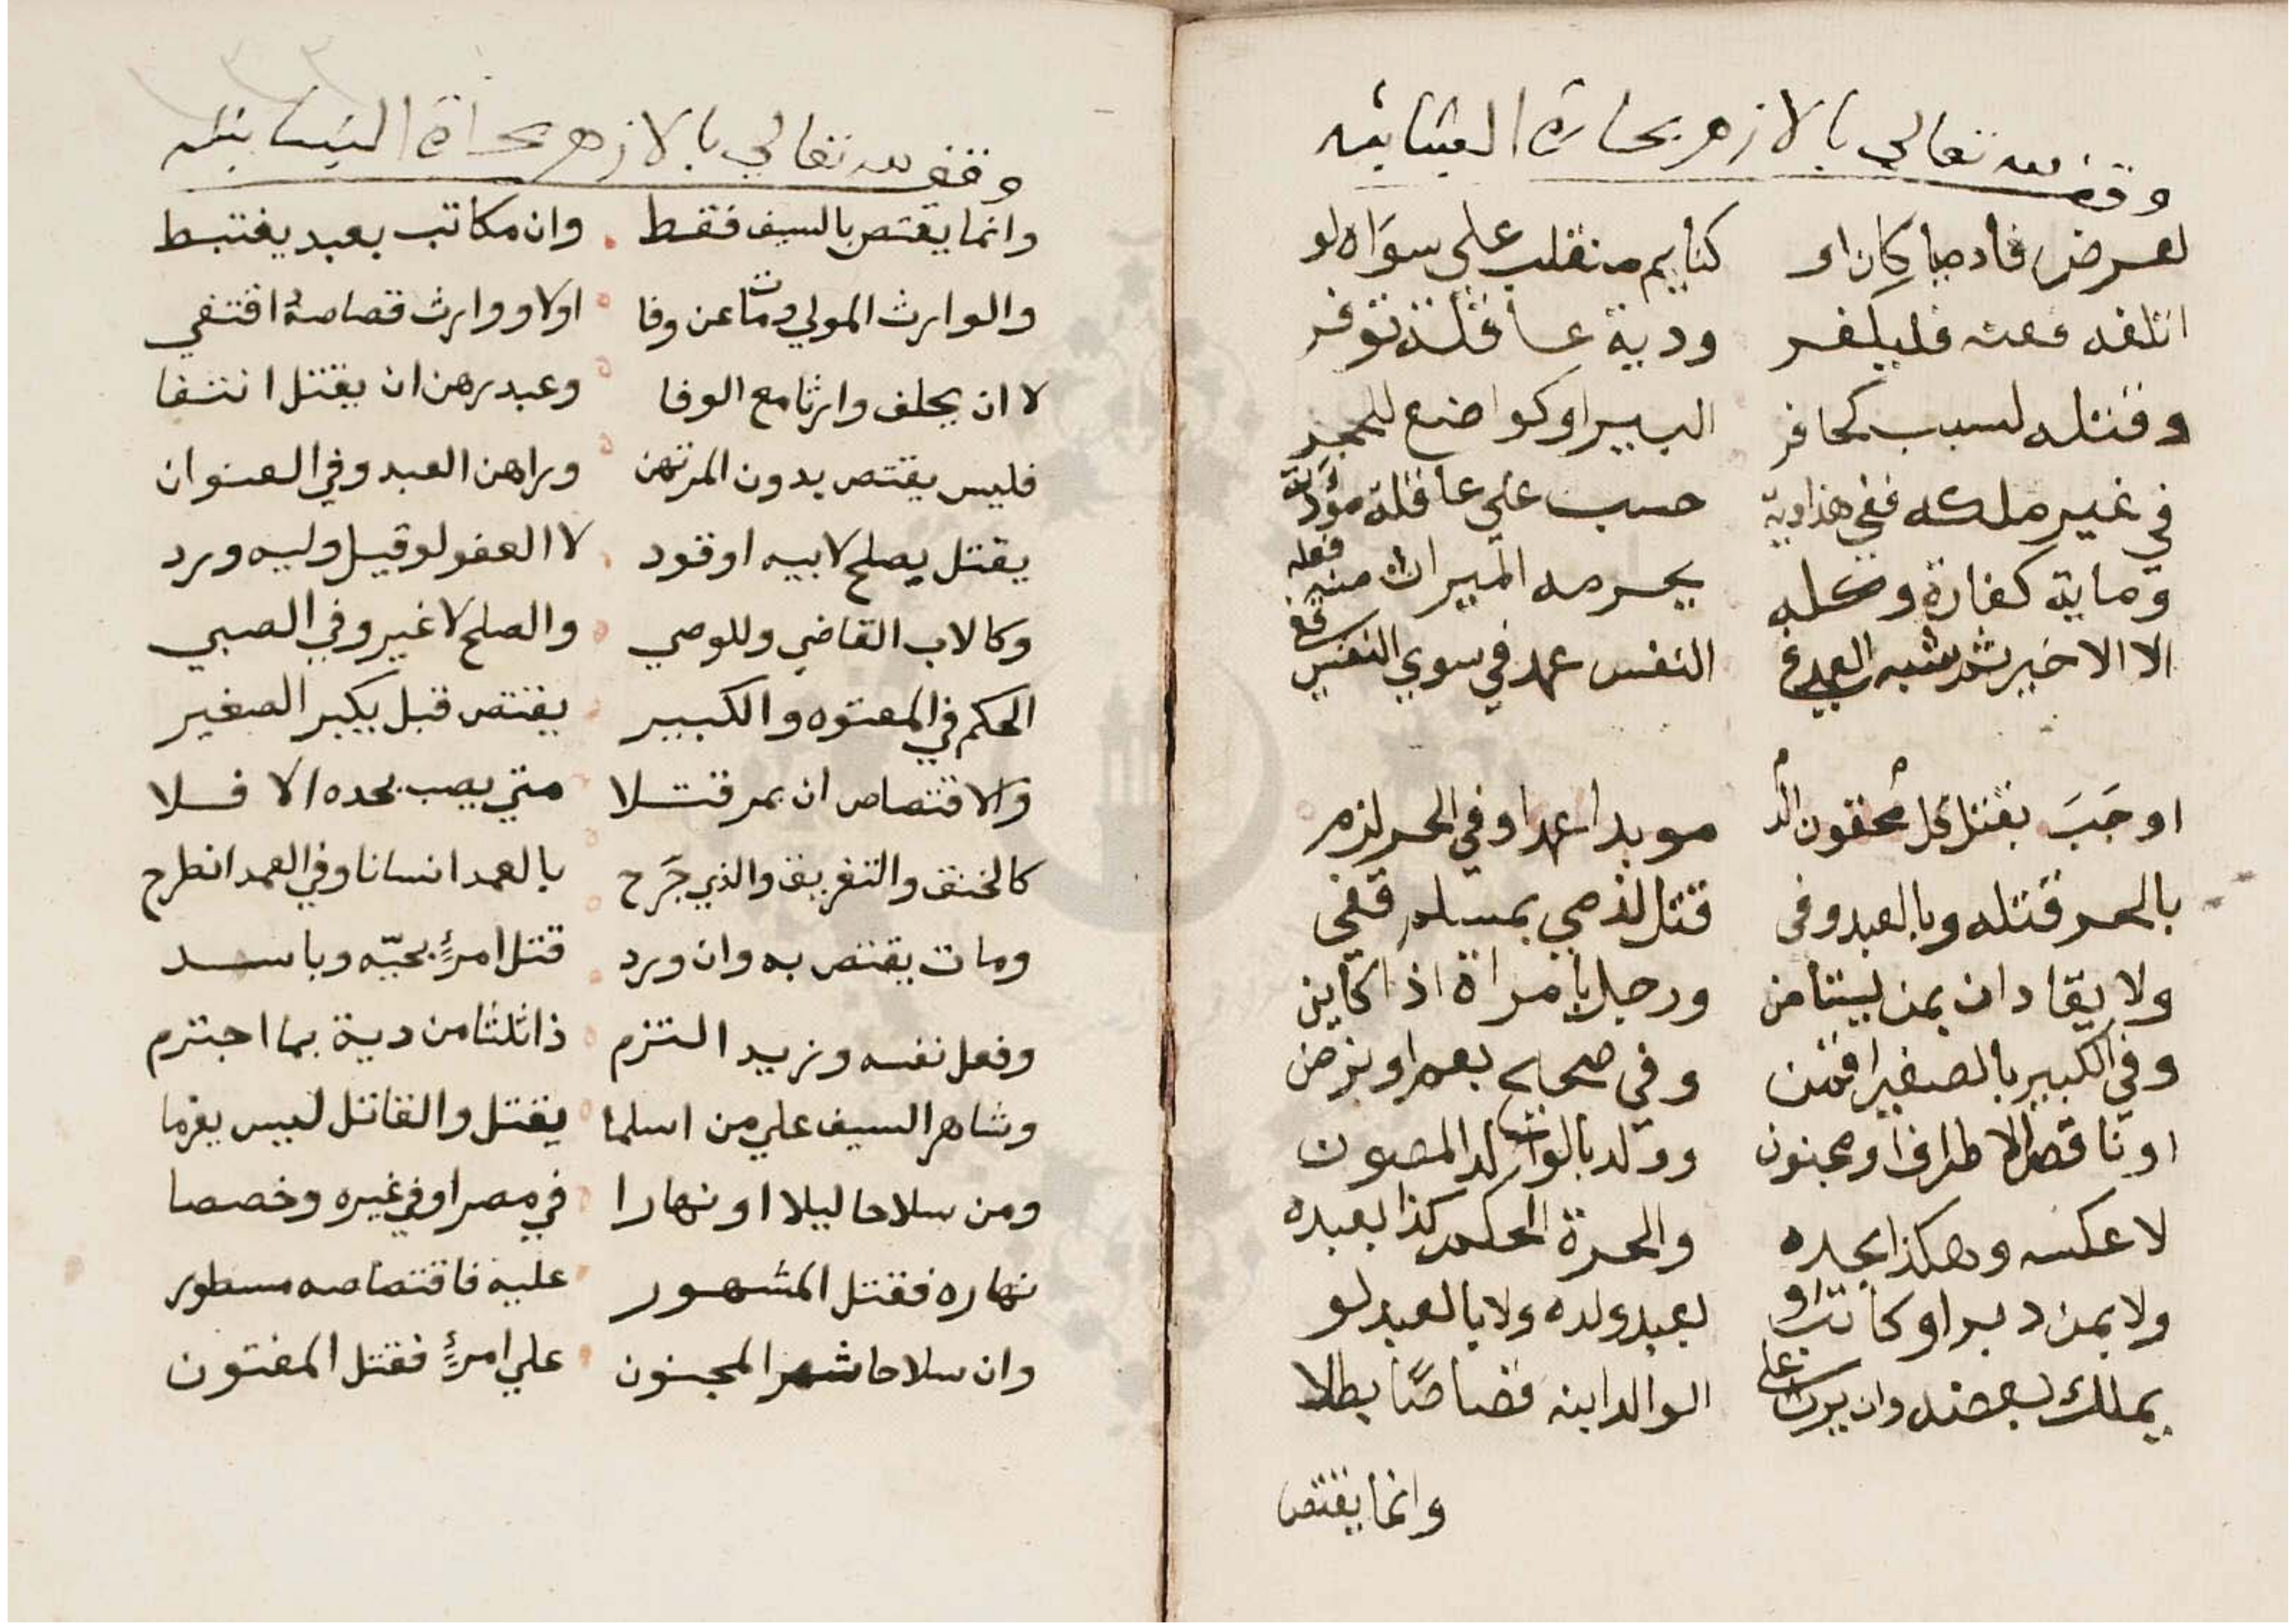 وقف لله تعالى بالازهر بحارة
لعرض فادميا كان او كنايم منقلب علي سواه لو
اتلفه فمنه فليكفر ودية عاقلة توفر
وقتله لسبب كحافر البير او كواضع للحجر
في غير ملكه ففي هذا دية حسب علي عاقلة مؤدية
وما به كفارة وكله يحرمه الميراث منه فعله
الا الاخير شبه العمد في النفس عمد في سوي النفس قفي
اوجب بقتل كل محقون الدم موبدا عمدا وفي الحر لزم
بالحر قتله وبالعبد وفي قتل لذمي بمسلم قفي
ولا يقادان بمن يستأمن ورجل بامراة اذا كاين
وفي الكبير بالصغير افتن وفي صحيح بعم او بزمن
او ناقص الاطراف او مجنون وولد بالوالد المصون
لا عكسه وهكذا بجده والحرة الحكم كذا بعبده
ولا بمن دبر او كاتب او بعبد ولده ولا بالعبد لو
يملك بعضه وان يرث علي الوالد ابنه قصاصا بطلا
وانما يقتص
وقف لله تعالي بالازهر بحارة
وانما يقتص بالسيف فقط وان مكاتب بعبد يغتبط
والوارث المولي ومات عن وفا اولا ووارث قصاصه اقتفي
لا ان يخلف وارثا مع الوفا وعبد رهن ان يقتل انتفا
فليس يقتص بدون المرتهن وراهن العبد وفي العنوان
يقتل يصلح لابيه او قود لا العفو لو قيل وليه ورد
وكالاب القاضي وللوصي والصلح لا غير وفي الصبي
الحكم في المعتوه والكبير يقتص قبل يكبر الصغير
والاقتصاص ان بمر قتلا متي يصب بحده الا فلا
كالخنق والتغريق والذي جَرَح بالعمد انسانا وفي العمد انطرح
ومات يقتص به وان ورد قتل امرئٍ بحيّه وباسد
وفعل نفسه وزيد التزم ذا ثلثا من دية بما اجترم
وشاهر السيف علي من اسلما يقتل والقاتل ليس يغرما
ومن سلاحا ليلا او نهارا في مصر او في غيره وخصصا
نهاره فقتل المشهور عليه فاقتصاصه مسطور
وان سلاحا شهر المجنون علي امرئٍ فقتل المفتون